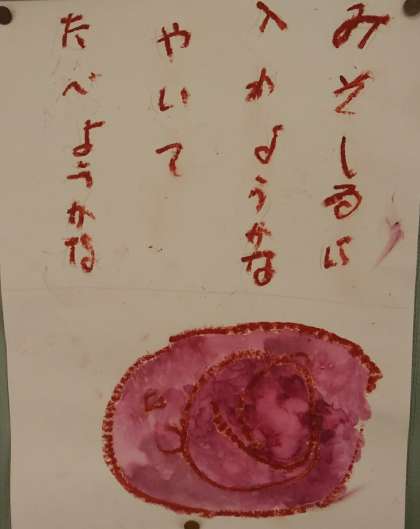 みそしるに
入れようかな
やいて
たべようかな